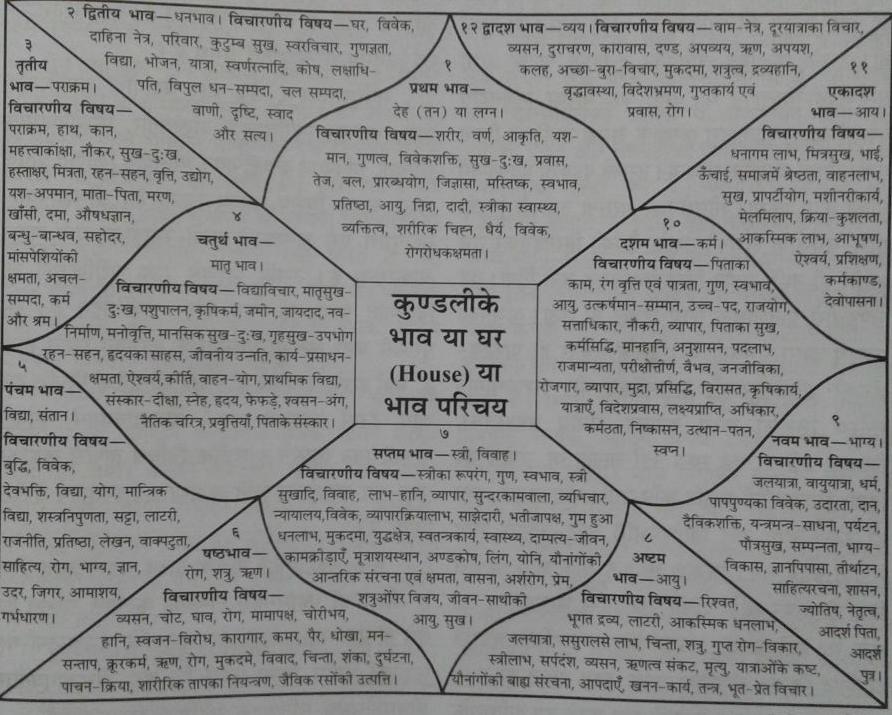 २ द्वितीय भाव—धनभाव। विचारणीय विषय—घर, विवेक,
दाहिना नेत्र, परिवार, कुटुम्ब सुख, स्वरविचार, गुणज्ञता,
विद्या, भोजन, यात्रा, स्वर्णरत्नादि, कोष, लक्षाधि-
पति, विपुल धन-सम्पदा, चल सम्पदा,
वाणी, दृष्टि, स्वाद
और सत्य।
१२ द्वादश भाव—व्यय। विचारणीय विषय—वाम-नेत्र, दूरयात्राका विचार,
व्यसन, दुराचरण, कारावास, दण्ड, अपव्यय, ऋण, अपयश,
कलह, अच्छा-बुरा-विचार, मुकदमा, शत्रुत्व, द्रव्यहानि,
वृद्धावस्था, विदेशभ्रमण, गुप्तकार्य एवं
प्रवास, रोग।
१
प्रथम भाव—
देह (तन) या लग्न।
विचारणीय विषय—शरीर, वर्ण, आकृति, यश-
मान, गुणत्व, विवेकशक्ति, सुख-दुःख, प्रवास,
तेज, बल, प्रारब्धयोग, जिज्ञासा, मस्तिष्क, स्वभाव,
प्रतिष्ठा, आयु, निद्रा, दादी, स्त्रीका स्वास्थ्य,
व्यक्तित्व, शारीरिक चिह्न, धैर्य, विवेक,
रोगरोधकक्षमता।
३
तृतीय
भाव—पराक्रम।
विचारणीय विषय—
पराक्रम, हाथ, कान,
महत्त्वाकांक्षा, नौकर, सुख-दुःख,
हस्ताक्षर, मित्रता, रहन-सहन, वृत्ति, उद्योग,
यश-अपमान, माता-पिता, मरण,
खाँसी, दमा, औषधज्ञान,
बन्धु-बान्धव, सहोदर,
मांसपेशियोंकी
क्षमता, अचल-
सम्पदा, कर्म
और श्रम।
११
एकादश
भाव—आय।
विचारणीय विषय—
धनागम लाभ, मित्रसुख, भाई,
ऊँचाई, समाजमें श्रेष्ठता, वाहनलाभ,
सुख, प्रापर्टीयोग, मशीनरीकार्य,
मेलमिलाप, क्रिया-कुशलता,
आकस्मिक लाभ, आभूषण,
ऐश्वर्य, प्रशिक्षण,
कर्मकाण्ड,
देवोपासना।
४
चतुर्थ भाव—
मातृ भाव।
विचारणीय विषय—विद्याविचार, मातृसुख-
दुःख, पशुपालन, कृषिकर्म, जमीन, जायदाद, नव-
निर्माण, मनोवृत्ति, मानसिक सुख-दुःख, गृहसुख-उपभोग
रहन-सहन, हृदयका साहस, जीवनीय उन्नति, कार्य-प्रसाधन-
क्षमता, ऐश्वर्य, कीर्ति, वाहन-योग, प्राथमिक विद्या,
संस्कार-दीक्षा, स्नेह, हृदय, फेफड़े, श्वसन-अंग,
नैतिक चरित्र, प्रवृत्तियाँ, पिताके संस्कार।
कुण्डलीके
भाव या घर
(House) या
भाव परिचय
१०
दशम भाव—कर्म।
विचारणीय विषय—पिताका
काम, रंग वृत्ति एवं पात्रता, गुण, स्वभाव,
आयु, उत्कर्षमान-सम्मान, उच्च-पद, राजयोग,
सत्ताधिकार, नौकरी, व्यापार, पिताका सुख,
कर्मसिद्धि, मानहानि, अनुशासन, पदलाभ,
राजमान्यता, परीक्षोत्तीर्ण, वैभव, जनजीविका,
रोजगार, व्यापार, मुद्रा, प्रसिद्धि, विरासत, कृषिकार्य,
यात्राएँ, विदेशप्रवास, लक्ष्यप्राप्ति, अधिकार,
कर्मठता, निष्कासन, उत्थान-पतन,
स्वप्न।
५
पंचम भाव—
विद्या, संतान।
विचारणीय विषय—
बुद्धि, विवेक,
देवभक्ति, विद्या, योग, मान्त्रिक
विद्या, शस्त्रनिपुणता, सट्टा, लाटरी,
राजनीति, प्रतिष्ठा, लेखन, वाक्पटुता,
साहित्य, रोग, भाग्य, ज्ञान,
उदर, जिगर, आमाशय,
गर्भधारण।
७
सप्तम भाव—स्त्री, विवाह।
विचारणीय विषय—स्त्रीका रूपरंग, गुण, स्वभाव, स्त्री
सुखादि, विवाह, लाभ-हानि, व्यापार, सुन्दरकामवाला, व्यभिचार,
न्यायालय,विवेक, व्यापारक्रियालाभ, साझेदारी, भतीजापक्ष, गुम हुआ
धनलाभ, मुकदमा, युद्धक्षेत्र, स्वतन्त्रकार्य, स्वास्थ्य, दाम्पत्य-जीवन,
कामक्रीड़ाएँ, मूत्राशयस्थान, अण्डकोष, लिंग, योनि, यौनांगोंकी
आन्तरिक संरचना एवं क्षमता, वासना, अर्शरोग, प्रेम,
शत्रुओंपर विजय, जीवन-साथीको
आयु, सुख।
९
नवम भाव—भाग्य।
विचारणीय विषय—
जलयात्रा, वायुयात्रा, धर्म,
पापपुण्यका विवेक, उदारता, दान,
दैविकशक्ति, यन्त्रमन्त्र-साधना, पर्यटन,
पौत्रसुख, सम्पन्नता, भाग्य-
विकास, ज्ञानपिपासा, तीर्थाटन,
साहित्यरचना, शासन,
ज्योतिष, नेतृत्व,
आदर्श पिता,
आदर्श
पुत्र।
६
षष्ठभाव—
रोग, शत्रु, ऋण।
विचारणीय विषय—
व्यसन, चोट, घाव, रोग, मामापक्ष, चोरीभय,
हानि, स्वजन-विरोध, कारागार, कमर, पैर, धोखा, मन-
सन्ताप, क्रूरकर्म, ऋण, रोग, मुकदमे, विवाद, चिन्ता, शंका, दुर्घटना,
पाचन-क्रिया, शारीरिक तापका नियन्त्रण, जैविक रसोंकी उत्पत्ति।
८
अष्टम
भाव—आयु।
विचारणीय विषय—रिश्वत,
भूगत द्रव्य, लाटरी, आकस्मिक धनलाभ,
जलयात्रा, ससुरालसे लाभ, चिन्ता, शत्रु, गुप्त रोग-विकार,
स्त्रीलाभ, सर्पदंश, व्यसन, ऋणत्व संकट, मृत्यु, यात्राओंके कष्ट,
यौनांगोंकी बाह्य संरचना, आपदाएँ, खनन-कार्य, तन्त्र, भूत-प्रेत विचार।